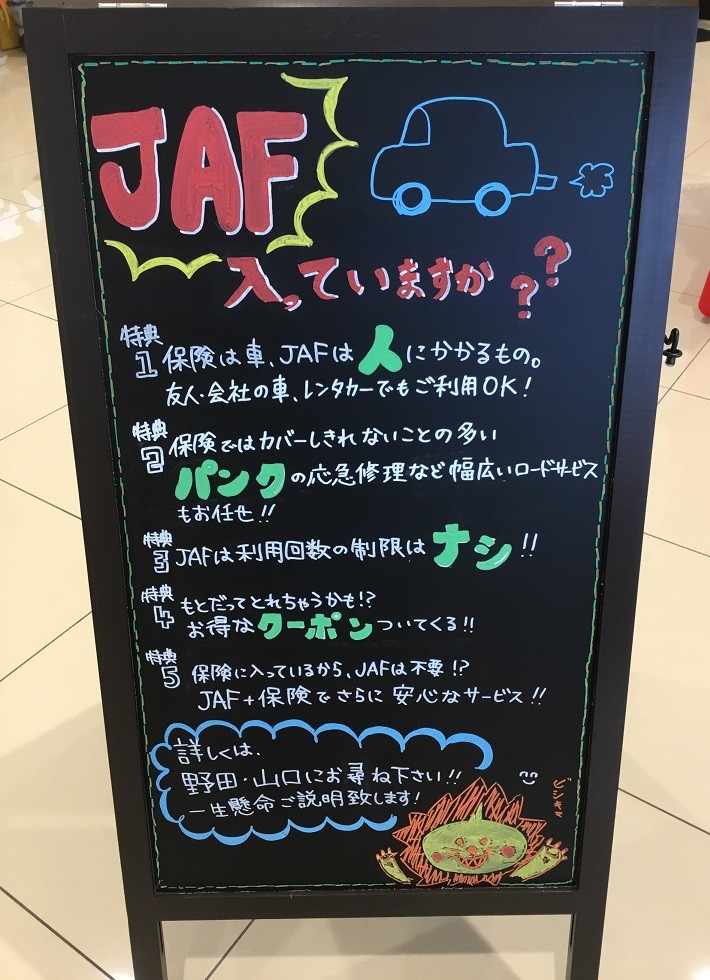 JAF
入っていますか??
特典1 保険は車、JAFは人にかかるもの。
友人・会社の車、レンタカーでもご利用OK!
特典2 保険ではカバーしきれないことの多い
パンクの応急修理など幅広いロードサービス
もお任せ!!
特典3 JAFは利用回数の制限はナシ!!
特典4 もとだってとれちゃうかも!?
お得なクーポンついてくる!!
特典5 保険に入っているから、JAFは不要!?
JAF+保険でさらに安心なサービス!!
詳しくは、
野田・山口にお尋ね下さい!!
一生懸命ご説明致します!